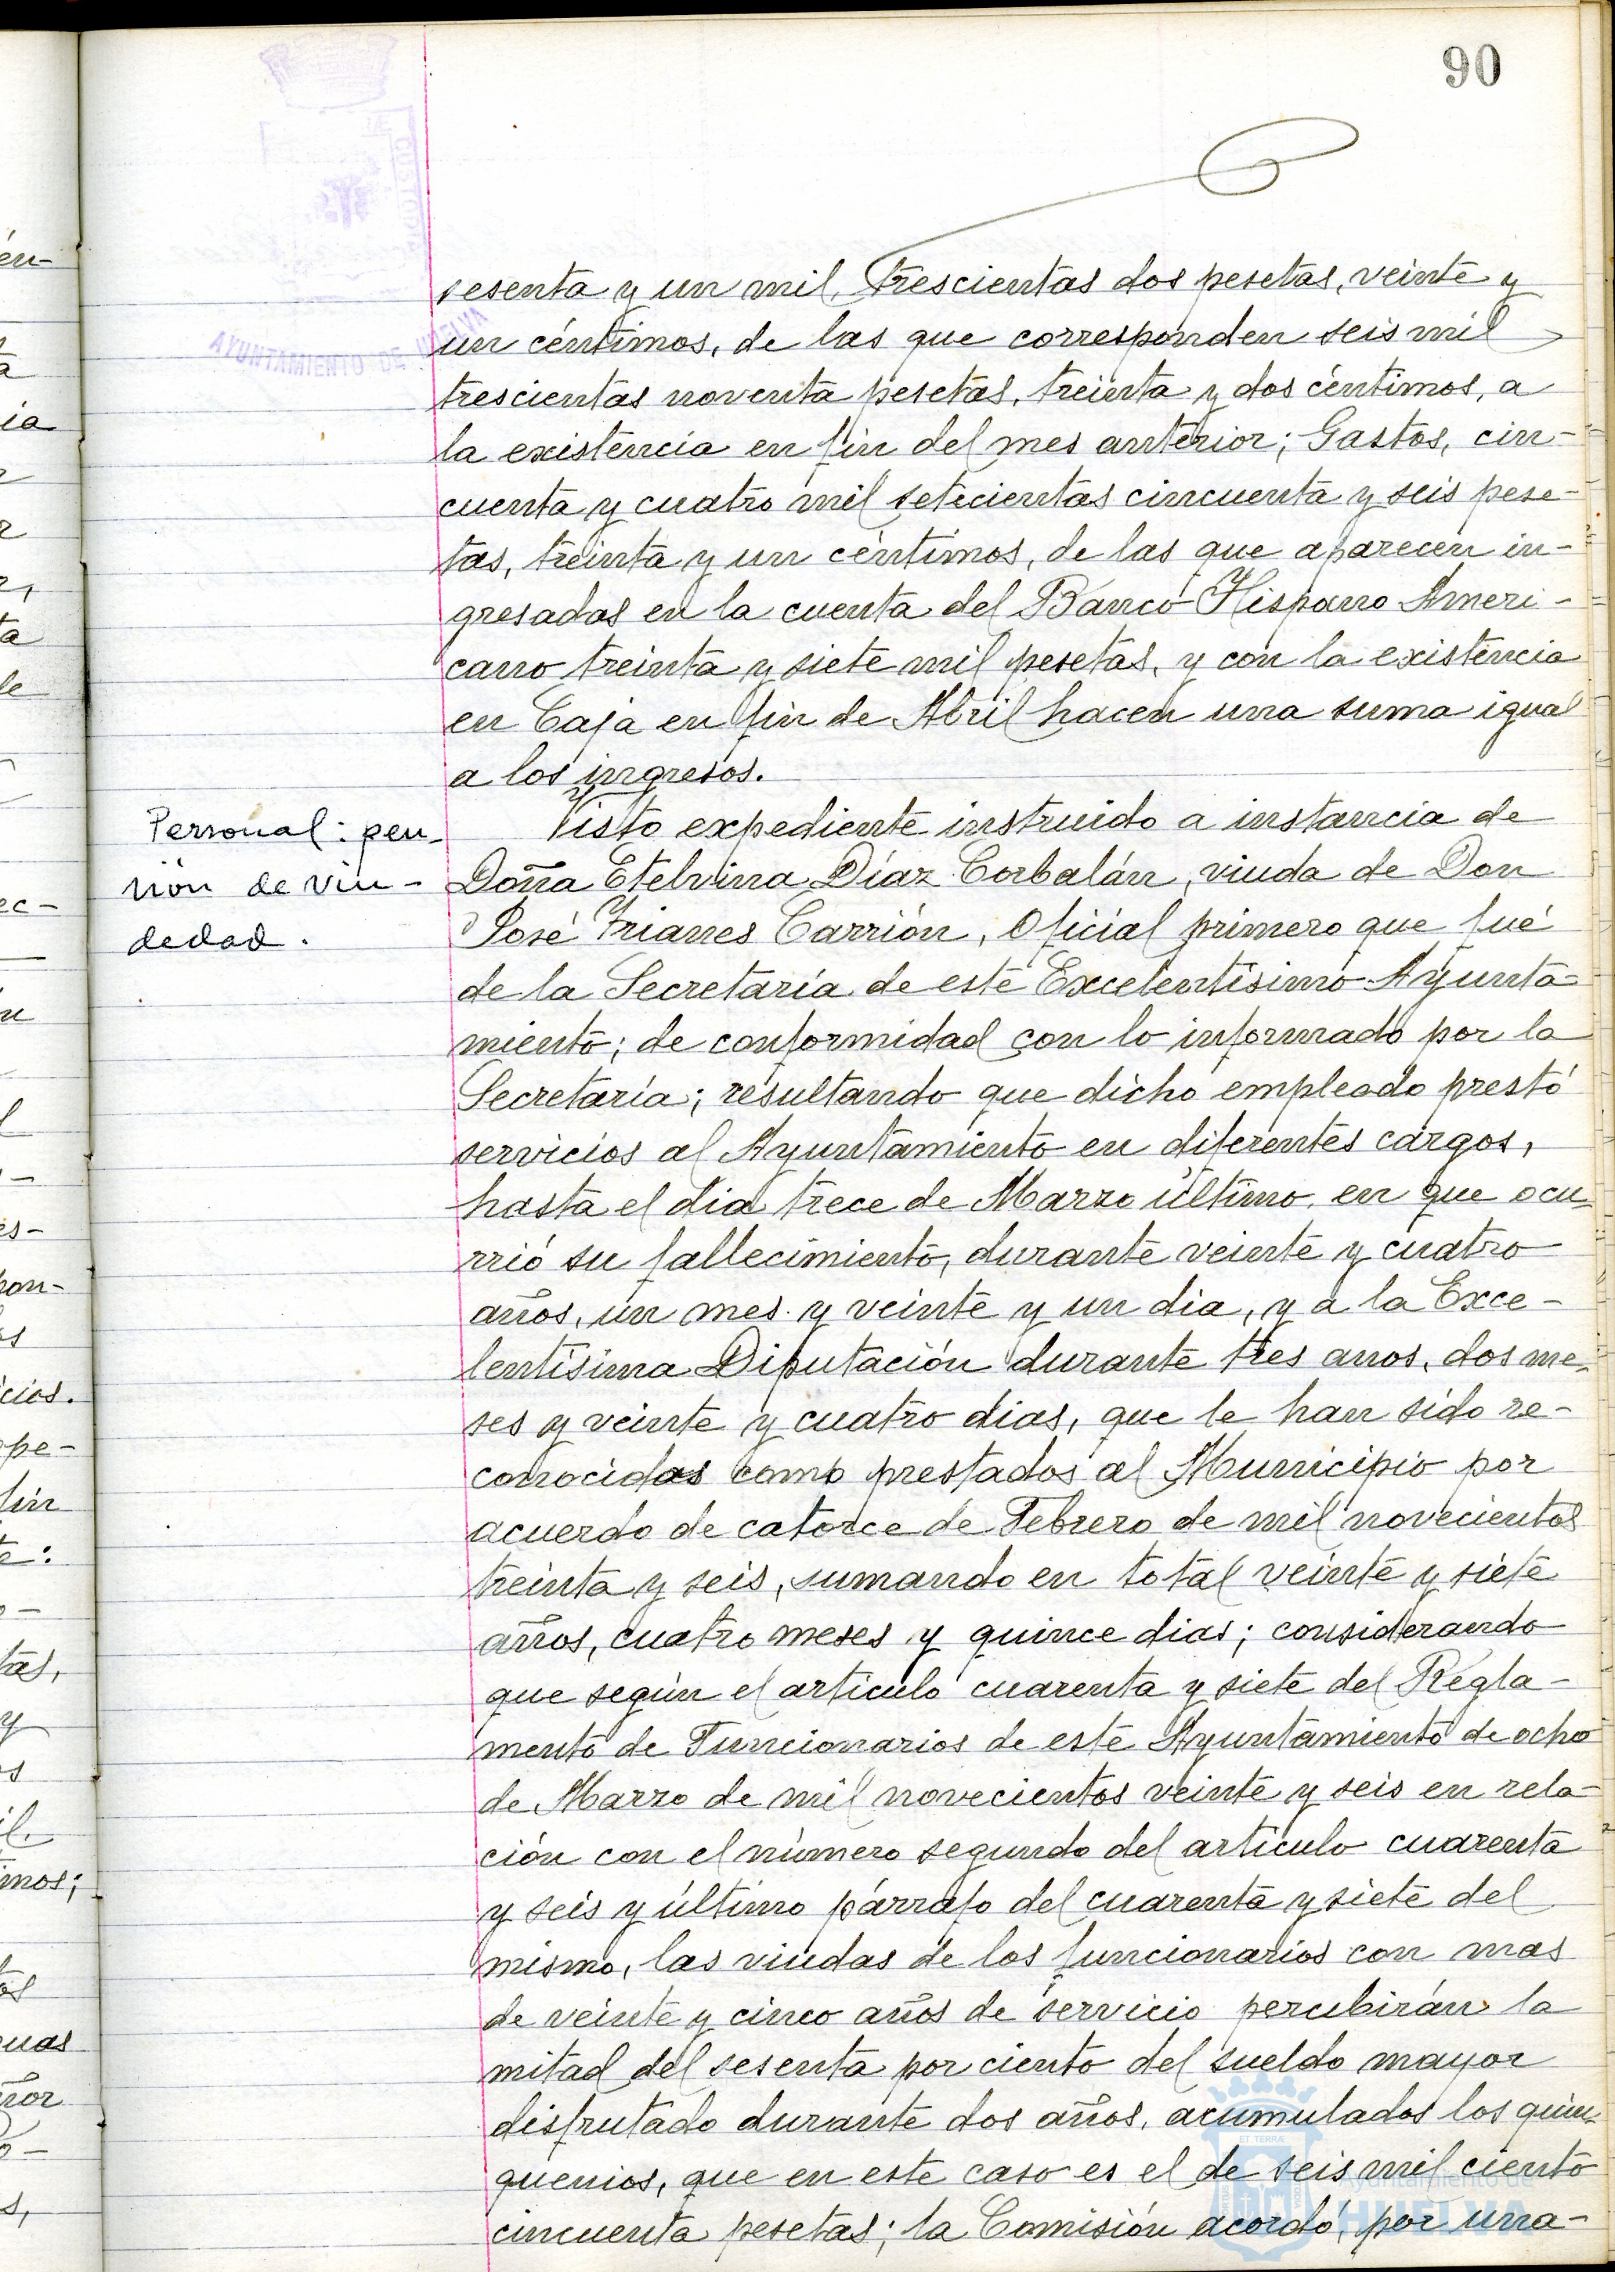 90
sesenta y un mil, trescientas dos pesetas, veinte y
un céntimos, de las que corresponden seis mil
trescientas noventa pesetas, treinta y dos céntimos, a
la existencia en fin del mes anterior; Gastos, cin-
cuenta y cuatro mil setecientas cincuenta y seis pese-
tas, treinta y un céntimos, de las que aparecen in-
gresadas en la cuenta del Banco Hispano Ameri-
cano treinta y siete mil pesetas, y con la existencia
en Caja en fin de Abril hacen una suma igual
a los ingresos.
Personal: pen-
sión de viu-
dedad.
Visto expediente instruido a instancia de
Doña Etelvina Díaz Corbalán, viuda de Don
José Trianes Carrión, Oficial primero que fué
de la Secretaría de este Excelentísimo Ayunta-
miento; de conformidad con lo informado por la
Secretaría; resultando que dicho empleado prestó
servicios al Ayuntamiento en diferentes cargos,
hasta el dia trece de Marzo último, en que ocu-
rrió su fallecimiento, durante veinte y cuatro
años, un mes y veinte y un dia, y a la Exce-
lentísima Diputación durante tres anos, dos me-
ses y veinte y cuatro dias, que le han sido re-
conocidas como prestados al Municipio por
acuerdo de catorce de Febrero de mil novecientos
treinta y seis, sumando en total veinte y siete
años, cuatro meses y quince dias; considerando
que según el artículo cuarenta y siete del Regla-
mento de Funcionarios de este Ayuntamiento de ocho
de Marzo de mil novecientos veinte y seis en rela-
ción con el número segundo del artículo cuarenta
y seis y último párrafo del cuarenta y siete del
mismo, las viudas de los funcionarios con mas
de veinte y cinco años de servicio percibirán la
mitad del sesenta por ciento del sueldo mayor
disfrutado durante dos años, acumulados los quin-
quenios, que en este caso es el de seis mil ciento
cincuenta pesetas; la Comisión acordó, por una-
AYUNTAMIENTO DE HUELVA
Ayuntamiento de
HUELVA